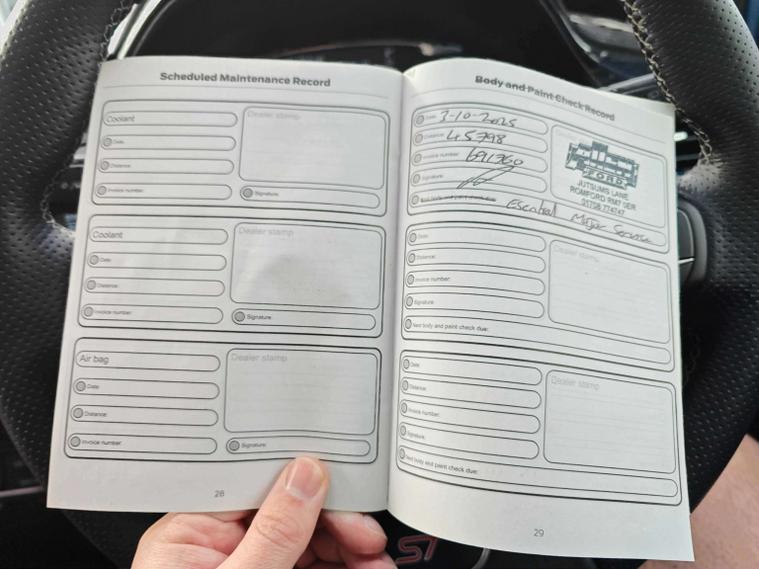 Scheduled Maintenance Record
Coolant
Dealer stamp
Date:
Distance:
Invoice number:
Signature:
Coolant
Dealer stamp
Date:
Distance:
Invoice number:
Signature:
Air bag
Dealer stamp
Date:
Distance:
Invoice number:
Signature:
28
Body and Paint Check Record
Date: 3-10-2025
Distance: 45798
Invoice number: 691760
Signature:
Next body and paint check due: Essential Major Service
FORD
JUTSUMS LANE
ROMFORD RM7 0ER
01708 774747
Date:
Dealer stamp
Distance:
Invoice number:
Signature:
Next body and paint check due:
Date:
Dealer stamp
Distance:
Invoice number:
Signature:
Next body and paint check due:
29
ST